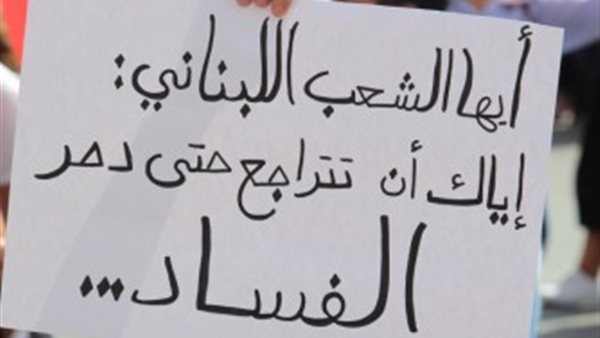 أيها الشعب اللبناني:
إياك أن تتراجع حتى دحر
الفساد...